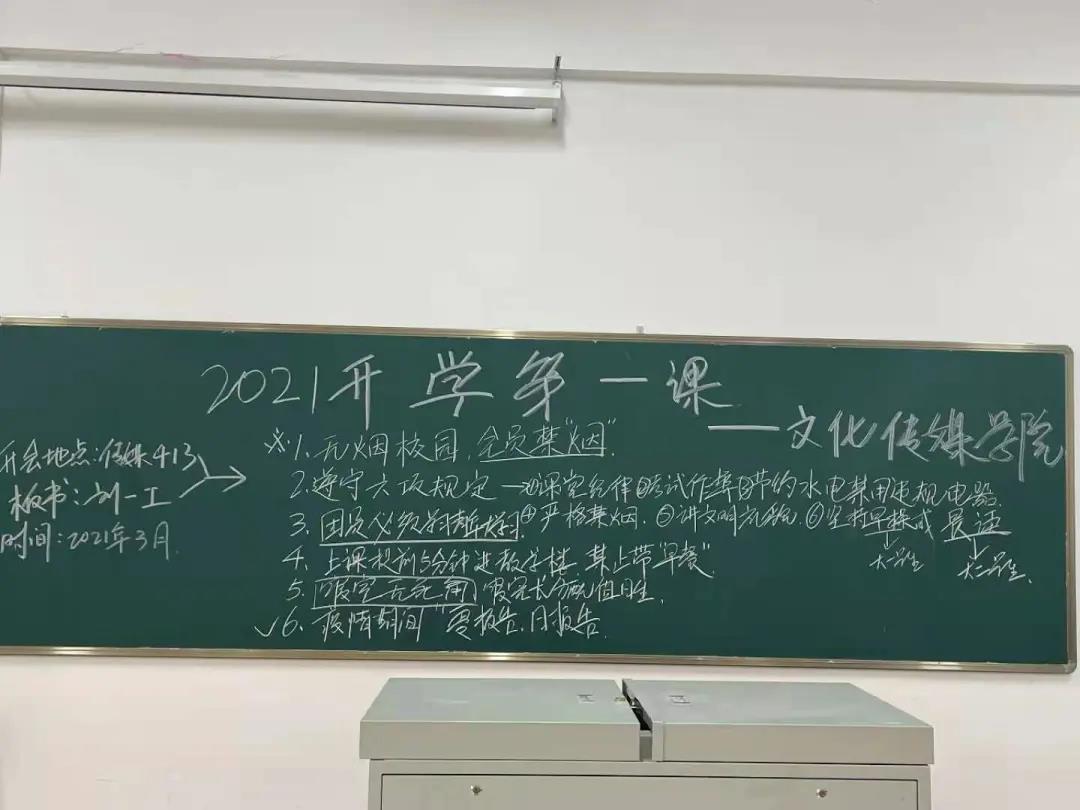 2021开学第一课
——文化传媒学院
开会地点:传媒413
板书:刘一工
时间:2021年3月
※1.无烟校园,全员禁"烟".
2.遵守六项规定→①课堂纪律②考试作弊③节约水电禁用违规电器
3.团员必须学习青年大学习④严格禁烟.⑤讲文明礼貌.⑥坚持早操或晨读
大一学生 大二学生.
4.上课提前5分钟进教学楼,禁止带"早餐"
5.寝室无死角,寝室长分配值日生.
✓6.疫情期间"零报告,日报告.